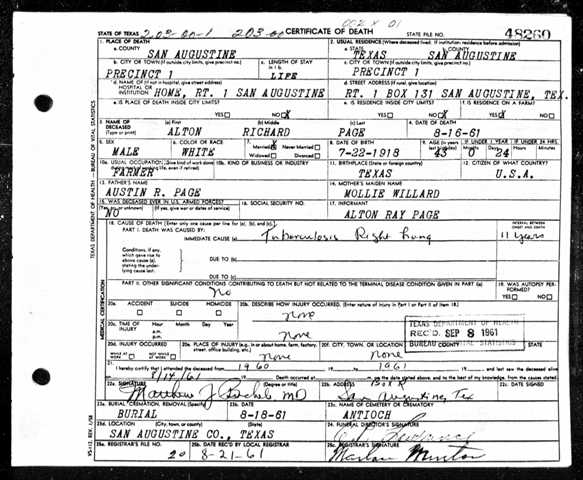 STATE OF TEXAS 203-00-1 203-00 CERTIFICATE OF DEATH STATE FILE NO. 48260
1. PLACE OF DEATH 2. USUAL RESIDENCE (Where deceased lived. If institution: residence before admission)
a. COUNTY SAN AUGUSTINE a. STATE TEXAS b. COUNTY SAN AUGUSTINE
b. CITY OR TOWN (If outside city limits, give precinct no.) c. LENGTH OF STAY in 1 b. c. CITY OR TOWN (If outside city limits, give precinct no.)
PRECINCT 1 LIFE PRECINCT 1
d. NAME OF (If not in hospital, give street address) HOSPITAL OR INSTITUTION d. STREET ADDRESS (If rural, give location)
HOME, RT. 1 SAN AUGUSTINE RT. 1 BOX 131 SAN AUGUSTINE, TEX.
e. IS PLACE OF DEATH INSIDE CITY LIMITS? e. IS RESIDENCE INSIDE CITY LIMITS? f. IS RESIDENCE ON A FARM?
YES NO X YES NO X YES X NO
3. NAME OF DECEASED (Type or print) (a) First (b) Middle (c) Last 4. DATE OF DEATH
ALTON RICHARD PAGE 8-16-61
5. SEX 6. COLOR OR RACE 7. Married X Never Married Widowed Divorced 8. DATE OF BIRTH 9. AGE (In years last birthday) IF UNDER 1 YEAR IF UNDER 24 HRS.
MALE WHITE 7-22-1918 43 Months 0 Days 24 Hours Minutes
10a. USUAL OCCUPATION (Give kind of work done during most of working life, even if retired) 10b. KIND OF BUSINESS OR INDUSTRY 11. BIRTHPLACE (State or foreign country) 12. CITIZEN OF WHAT COUNTRY?
FARMER TEXAS U.S.A.
13. FATHER'S NAME 14. MOTHER'S MAIDEN NAME
AUSTIN R. PAGE MOLLIE WILLARD
15. WAS DECEASED EVER IN U.S. ARMED FORCES? (Yes, no, or unknown) (If yes, give war or dates of service) 16. SOCIAL SECURITY NO. 17. INFORMANT
NO ALTON RAY PAGE
18. CAUSE OF DEATH [Enter only one cause per line for (a), (b), and (c).] INTERVAL BETWEEN ONSET AND DEATH
PART I. DEATH WAS CAUSED BY:
IMMEDIATE CAUSE (a) Tuberculosis Right Lung 11 years
Conditions, if any, which gave rise to above cause (a), stating the underlying cause last. DUE TO (b)
DUE TO (c)
PART II. OTHER SIGNIFICANT CONDITIONS CONTRIBUTING TO DEATH BUT NOT RELATED TO THE TERMINAL DISEASE CONDITION GIVEN IN PART I(a) 19. WAS AUTOPSY PERFORMED?
No YES NO
20a. ACCIDENT SUICIDE HOMICIDE 20b. DESCRIBE HOW INJURY OCCURRED. (Enter nature of injury in Part I or Part II of item 18.)
none
20c. TIME OF INJURY Hour Month Day Year
none
TEXAS DEPARTMENT OF HEALTH
REC'D. SEP 8 1961
BUREAU OF VITAL STATISTICS
20d. INJURY OCCURRED WHILE AT WORK NOT WHILE AT WORK 20e. PLACE OF INJURY (e.g., in or about home, farm, factory, street, office building, etc.) 20f. CITY, TOWN, OR LOCATION COUNTY STATE
none none
21. I hereby certify that I attended the deceased from 1960 19 to 1961 19 and last saw the deceased alive
on 8/14/61 19 Death occurred at m. on the date stated above, and to the best of my knowledge, from the causes stated.
22a. SIGNATURE (Degree or title) 22b. ADDRESS 22c. DATE SIGNED
Matthew J. MD Box R San Augustine, Tex
23a. BURIAL, CREMATION, REMOVAL (Specify) 23b. DATE 23c. NAME OF CEMETERY OR CREMATORY
BURIAL 8-18-61 ANTIOCH
23d. LOCATION (City, town, or county) (State) 24. FUNERAL DIRECTOR'S SIGNATURE
SAN AUGUSTINE CO., TEXAS
25a. REGISTRAR'S FILE NO. 25b. DATE REC'D BY LOCAL REGISTRAR 25c. REGISTRAR'S SIGNATURE
20 8-21-61 Minton
TEXAS DEPARTMENT OF HEALTH — BUREAU OF VITAL STATISTICS
MEDICAL CERTIFICATION
VS-112 REV. 1/58